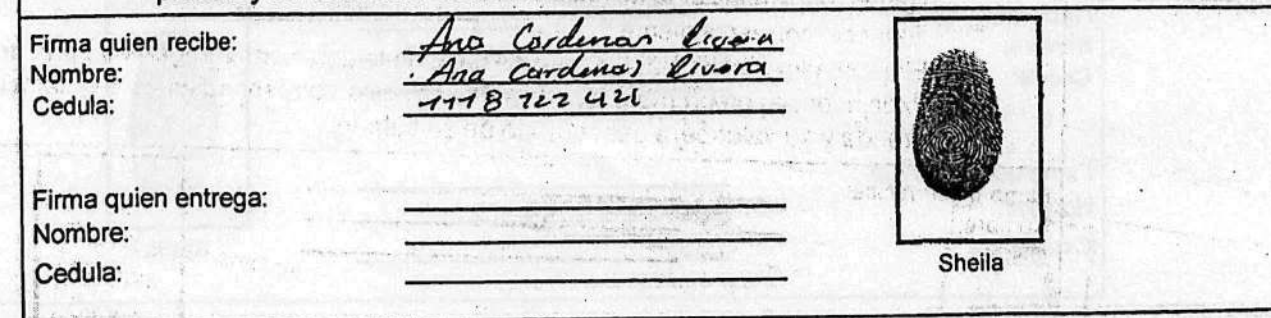 Firma quien recibe: Ana Cardenas Rivera
Nombre: Ana Cardenas Rivera
Cedula:
Firma quien entrega:
Nombre:
Cedula:
Sheila